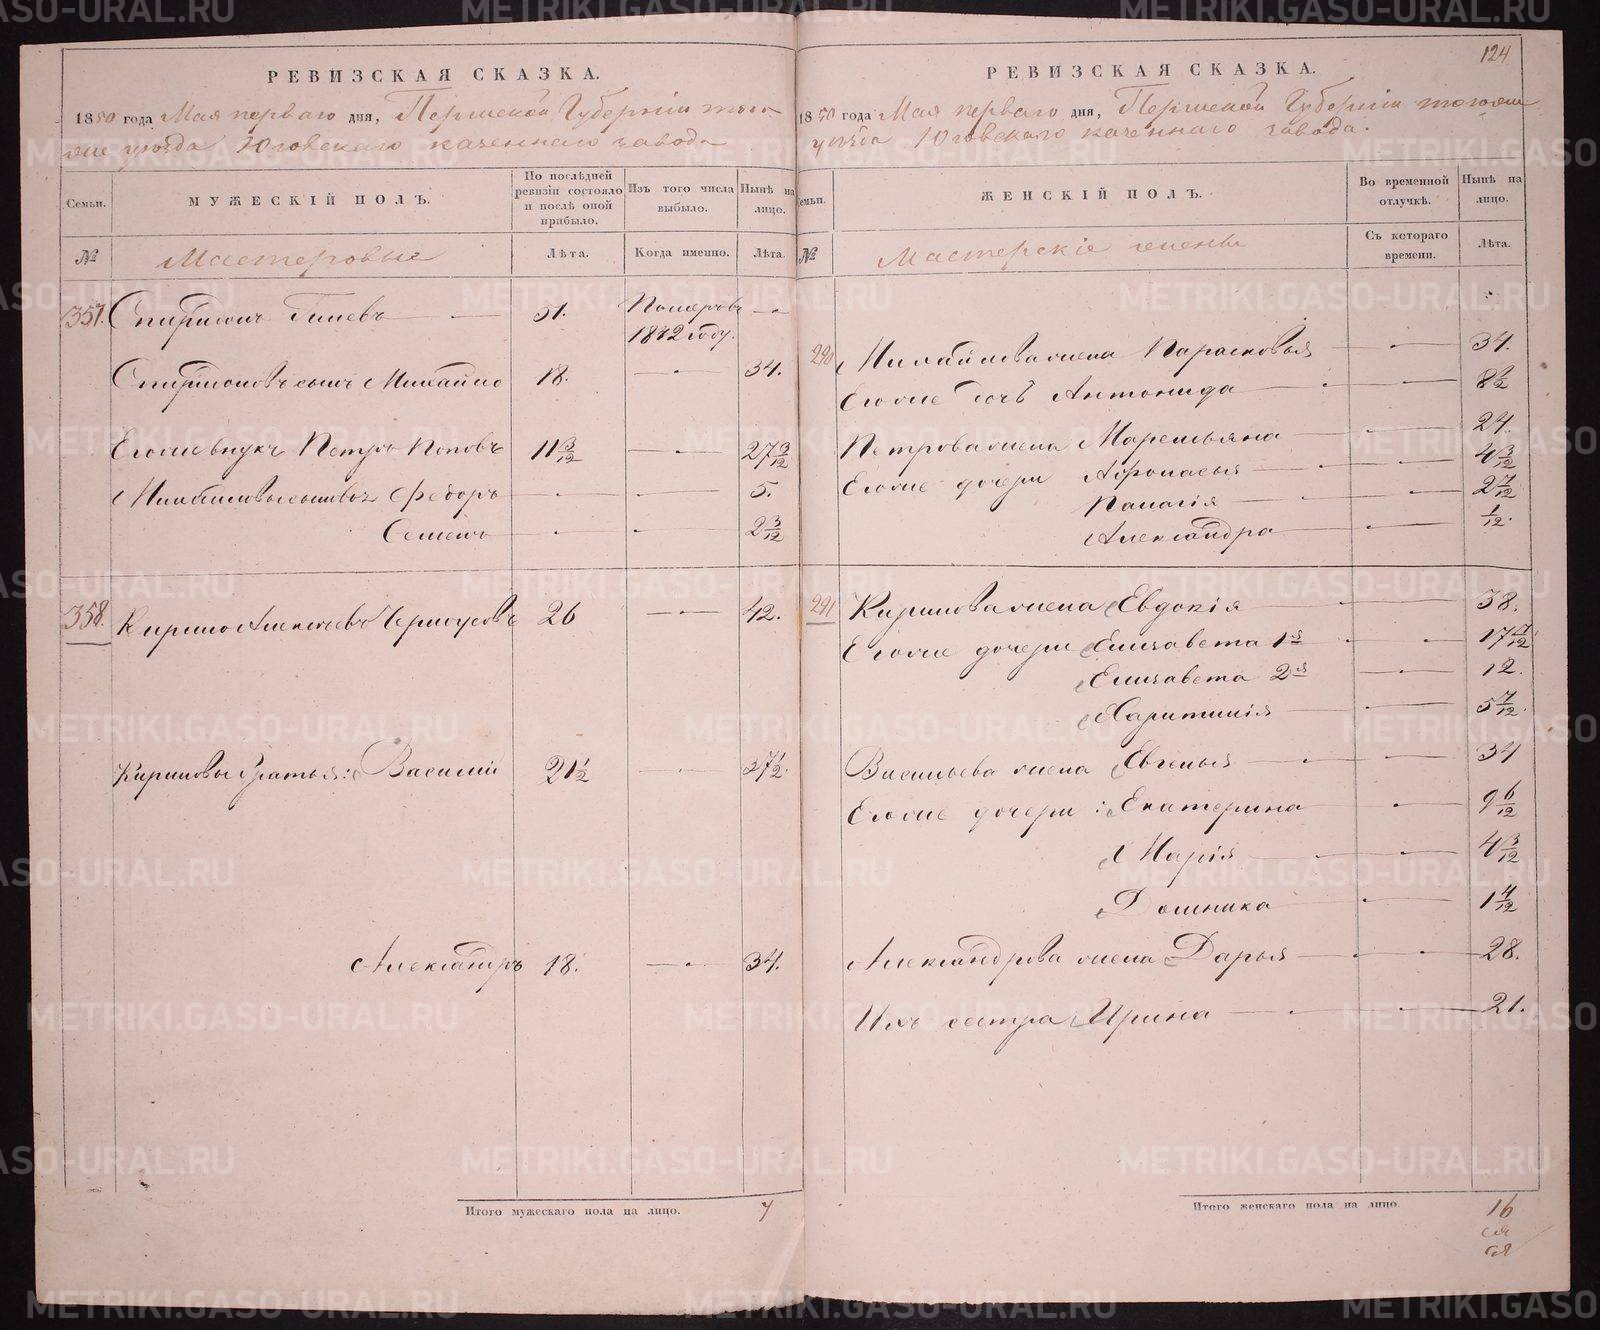 124
РЕВИЗСКАЯ СКАЗКА.
1850 года Мая перваго дня, Пермской Губерніи того
же уѣзда Юговскаго казеннаго завода
Семьи.
МУЖЕСКІЙ ПОЛЪ.
По послѣдней ревизіи состояло и послѣ оной прибыло.
Изъ того числа выбыло.
Нынѣ на лицо.
№
Мастеровые
Лѣта.
Когда именно.
Лѣта.
357. Спиридонъ 51. Померъ въ —
1842 году.
Спиридоновъ сынъ Михайло 18. — 34.
Его же внукъ Петръ Поповъ 11 3/12 — 27 3/12
Михайловы сыновья Федоръ — — 5.
Семенъ — — 2 3/12
358. Кирило Алексѣевъ 26 — 42.
Кириловы братья: Василій 21 1/2 — 37 1/2.
Александръ 18. — 34.
Итого мужескаго пола на лицо. 7
РЕВИЗСКАЯ СКАЗКА.
1850 года Мая перваго дня, Пермской Губерніи тогоже
уѣзда Юговскаго казеннаго завода.
Семьи.
ЖЕНСКІЙ ПОЛЪ.
Во временной отлучкѣ.
Нынѣ на лицо.
№
Мастерскіе жены
Съ котораго времени.
Лѣта.
290 Михайлова жена Парасковья — 34.
Его же дочь Антонида — 8 1/2
Петрова жена Маремьяна — 24.
Его же дочери Афонасья — 4 3/12
Панагія — 2 7/12
Александра — 1/12.
291 Кирилова жена Евдокія — 38.
Его же дочери Елизавета 1я — 17 7/12
Елизавета 2я — 12.
Харитинія — 5 7/12.
Васильева жена Евгенья — 34
Его же дочери: Екатерина — 9 6/12
Марія — 4 3/12
Домника — 1 4/12
Александрова жена Дарья — 28.
Ихъ сестра Ирина — 21.
Итого женскаго пола на лицо 16
METRIKI.GASO-URAL.RU